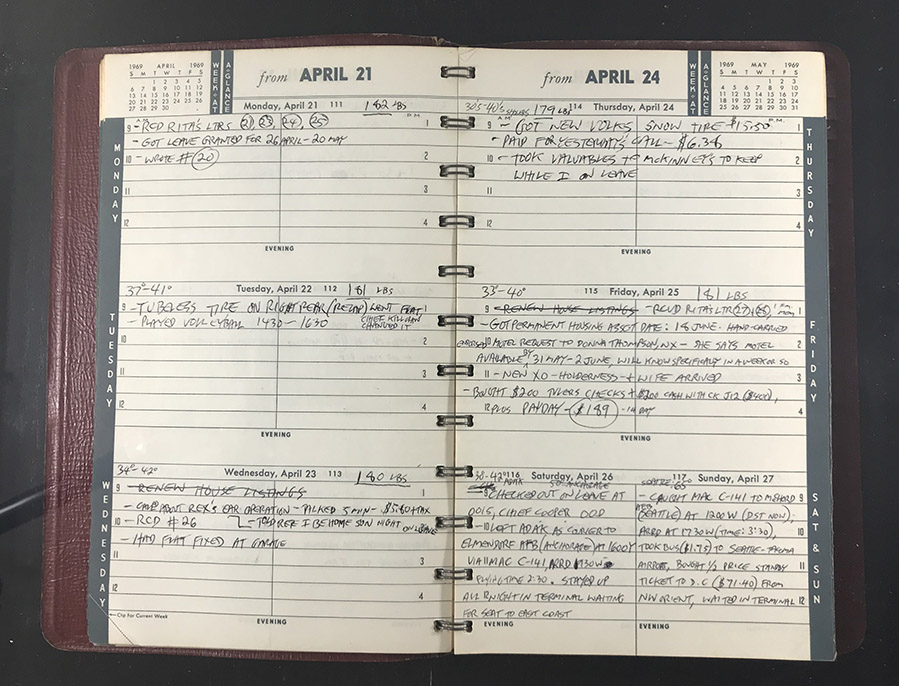 1969 APRIL 1969
S M T W T F S
1 2 3 4 5
6 7 8 9 10 11 12
13 14 15 16 17 18 19
20 21 22 23 24 25 26
27 28 29 30
WEEK-AT
A-GLANCE
from APRIL 21
Monday, April 21 111 182 LBS
MONDAY
9 - RCD RITA'S LTRS (21) (23) (24) (25)
- GOT LEAVE GRANTED FOR 26 APRIL - 20 MAY
10 - WROTE # (20)
11
12
P.M.
1
2
3
4
EVENING
37° - 41° Tuesday, April 22 112 181 LBS
TUESDAY
9 - TUBELESS TIRE ON RIGHT REAR (RECAP) WENT FLAT
- PLAYED VOLLEYBALL 1430 - 1630
CHIEF
CHANGED IT
10
11
12
2
3
4
EVENING
34° - 42° Wednesday, April 23 113 180 LBS
WEDNESDAY
9 - RENEW HOUSE LISTINGS
- REX'S EAR OPERATION - TALKED 5 MIN - $5.80 + TAX
10 - RCD # 26 TOLD REX I BE HOME SUN NIGHT ON LEAVE
- HAD FLAT FIXED AT GARAGE
11
12
1
3
4
← Clip For Current Week
EVENING
from APRIL 24
WEEK-AT
A-GLANCE
1969 MAY 1969
S M T W T F S
1 2 3
4 5 6 7 8 9 10
11 12 13 14 15 16 17
18 19 20 21 22 23 24
25 26 27 28 29 30 31
30's - 40's 179 LBS 114 Thursday, April 24
THURSDAY
A.M.
P.M.
9 - GOT NEW VOLKS SNOW TIRE - $15.50 1
- PAID FOR YESTERDAY'S CALL - $6.38
10 - TOOK VALUABLES TO McKINNEY'S TO KEEP 2
WHILE I ON LEAVE
11 3
12 4
EVENING
33° - 40° 115 Friday, April 25 181 LBS
FRIDAY
9 - RENEW HOUSE LISTINGS - RCVD RITA'S LTR (27) (28) 1
- GOT PERMANENT HOUSING ASSGT DATE: 18 JUNE. HAND-CARRIED
10 MOTEL REQUEST TO DONNA THOMPSON, NX - SHE SAYS MOTEL 2
AVAILABLE BY 31 MAY - 2 JUNE, WILL KNOW SPECIFICALLY IN A WEEK OR SO
11 - NEW XO - HOLDERNESS + WIFE ARRIVED 3
- BOUGHT $200 TVLERS CHECKS + $200 CASH WITH CK J12 ($400),
12 PLUS PAYDAY - ($189) 4
EVENING
38 - 42° 116 Saturday, April 26
ADAK 50 ANCHORAGE
9 CHECKED OUT ON LEAVE AT
0015, CHIEF COOPER OOD
10 LEFT ADAK AS COURIER TO
ELMENDORF AFB (ANCHORAGE) AT 1600Y
VIA MAC C-141, ARRD 1730W
FLYING TIME 2:30. STAYED UP
ALL NIGHT IN TERMINAL WAITING
FOR SEAT TO EAST COAST
EVENING
117 Sunday, April 27
65°
SAT & SUN
- CAUGHT MAC C-141 TO McCHORD 9
AFB (SEATTLE) AT 1200W (DST NOW),
ARRD AT 1730W (TIME: 3:30), 10
TOOK BUS ($1.75) TO SEATTLE-TACOMA
AIRPORT, BOUGHT 1/2 PRICE STANDBY 11
TICKET TO D.C ($71.40) FROM
NW ORIENT, WAITED IN TERMINAL 12
EVENING